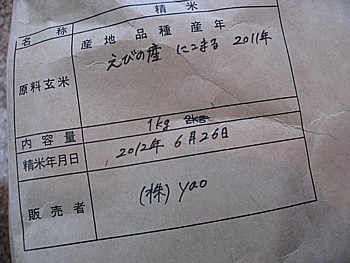 精米
名称 産地 品種 産年
原料玄米 えびの産 にこまる 2011年
内容量 1kg
精米年月日 2012年 6月26日
販売者 (株) yao